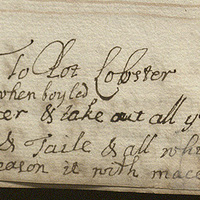 To Pot Lobster
when boyled
ter & take out all y
& Taile & all whi
eason it with mace